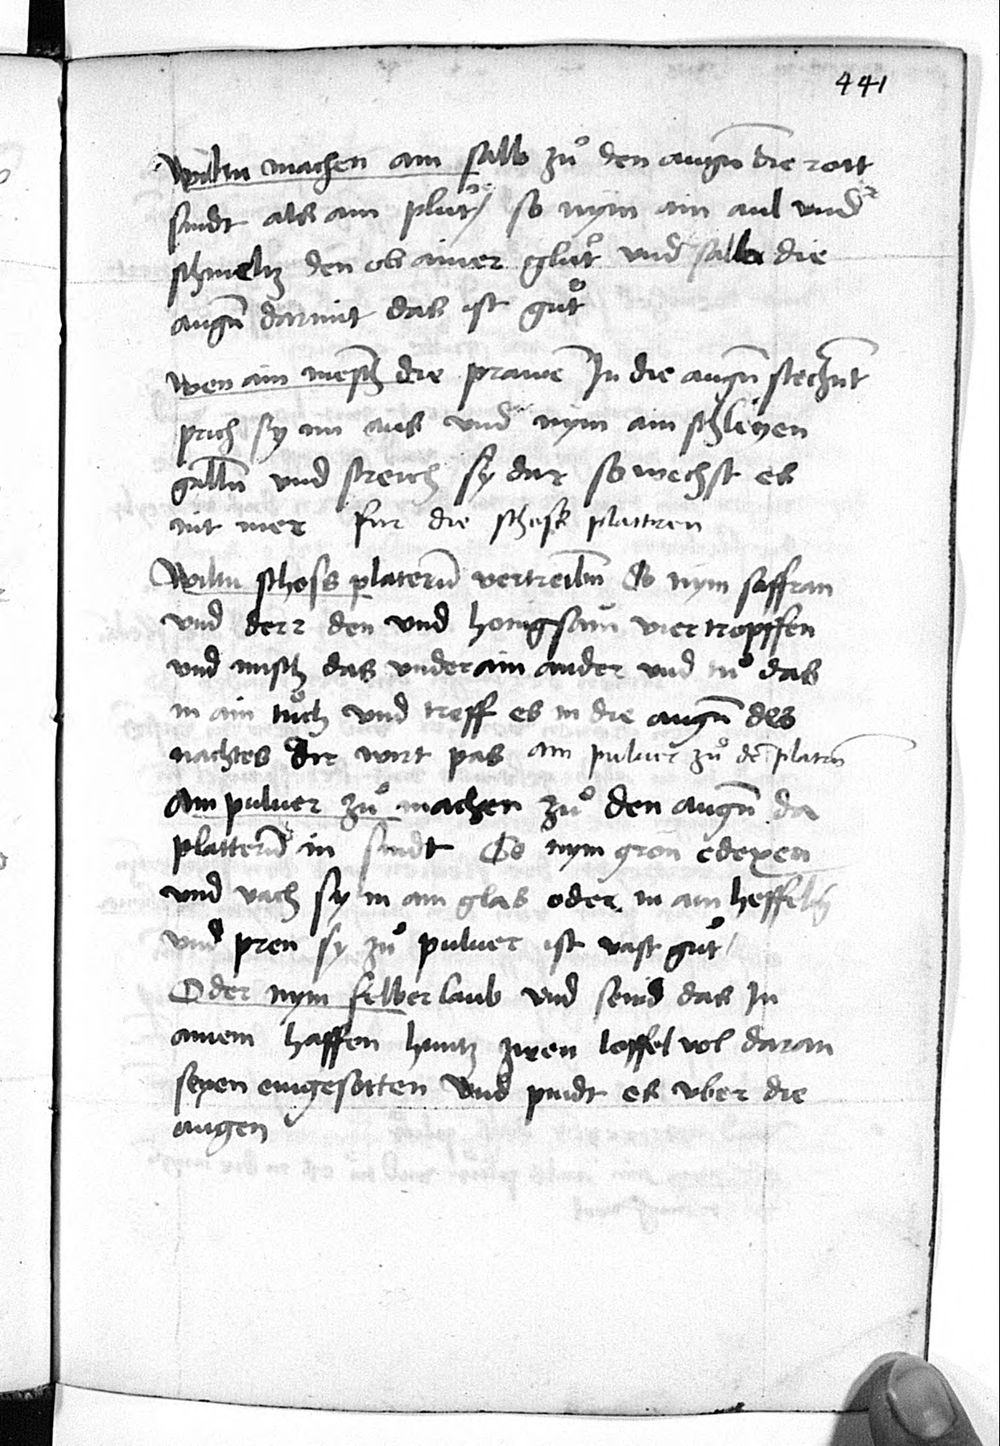 441
Wiltu machen ain salb zů den augñ die rott
sindt als ain plůt / so nym ain aul und
schmeltz den ob ainer glůt und salb die
augñ darmit das ist gůt
Wen ain mesch die prawe In die augñ stechnt
prich sy im aus und nym ain schleyen
gallñ und streich sy dar so wechst es
nit mer fur die schosß plattren
Wiltu schoss platerñ vertreibñ So nym saffran
und derr den und honigsam vier tropffen
und misch das under ain ander und tů das
in ain tůch und treff es in die augñ des
nachtes dir wirt pas ain puluer zů dē platrñ
Ain puluer zů machen zů den augñ da
platterñ in sindt So nym gron edexen
und vach sy in ain glas oder in ain heffely
und pren sy zů puluer ist vast gůt /
Oder nym felber laub und seud das In
ainem haffen huntz zwen loffel vol daran
seyen eingesotten und pindt es vber die
augen